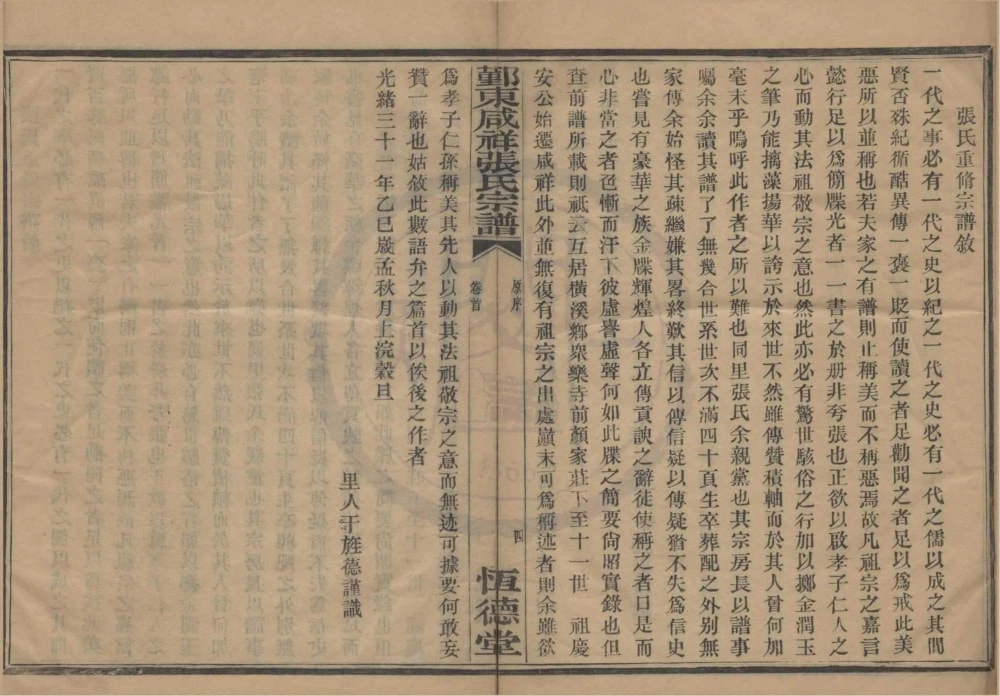 張氏重修宗譜敘
一代之事必有一代之史以紀之一代之史必有一代之儒以成之其間
賢否殊紀循酷異傳一褒一貶而使讀之者足勸聞之者足以爲戒此美
惡所以並稱也若夫家之有譜則止稱美而不稱惡焉故凡祖宗之嘉言
懿行足以爲簡牒光者一一書之於册非夸張也正欲以啟孝子仁人之
心而動其法祖敬宗之意也然此亦必有驚世駭俗之行加以擲金潤玉
之筆乃能摛藻揚華以誇示於來世不然雖傳贊積軸而於其人曾何加
毫末乎嗚呼此作者之所以難也同里張氏余親黨也其宗房長以譜事
囑余余讀其譜了了無幾合世系世次不滿四十頁生卒葬配之外别無
家傳余始怪其疎繼嫌其畧終歎其信以傳信疑以傳疑猶不失爲信史
也嘗見有豪華之族金牒輝煌人各立傳貢諛之辭徒使稱之者口是而
心非當之者色慚而汗下彼虛譽虛聲何如此牒之簡要尙昭實錄也但
查前譜所載則祇云互居橫溪鄉衆樂寺前顏家莊下至十一世　祖慶
安公始遷咸祥此外並無復有祖宗之出處巔末可爲稱述者則余雖欲
鄞東咸祥張氏宗譜
原序
卷首
四
恆德堂
爲孝子仁孫稱美其先人以動其法祖敬宗之意而無迹可據要何敢妄
贊一辭也姑敘此數語弁之篇首以俟後之作者
光緒三十一年乙巳歲孟秋月上浣穀旦
里人于旌德謹識